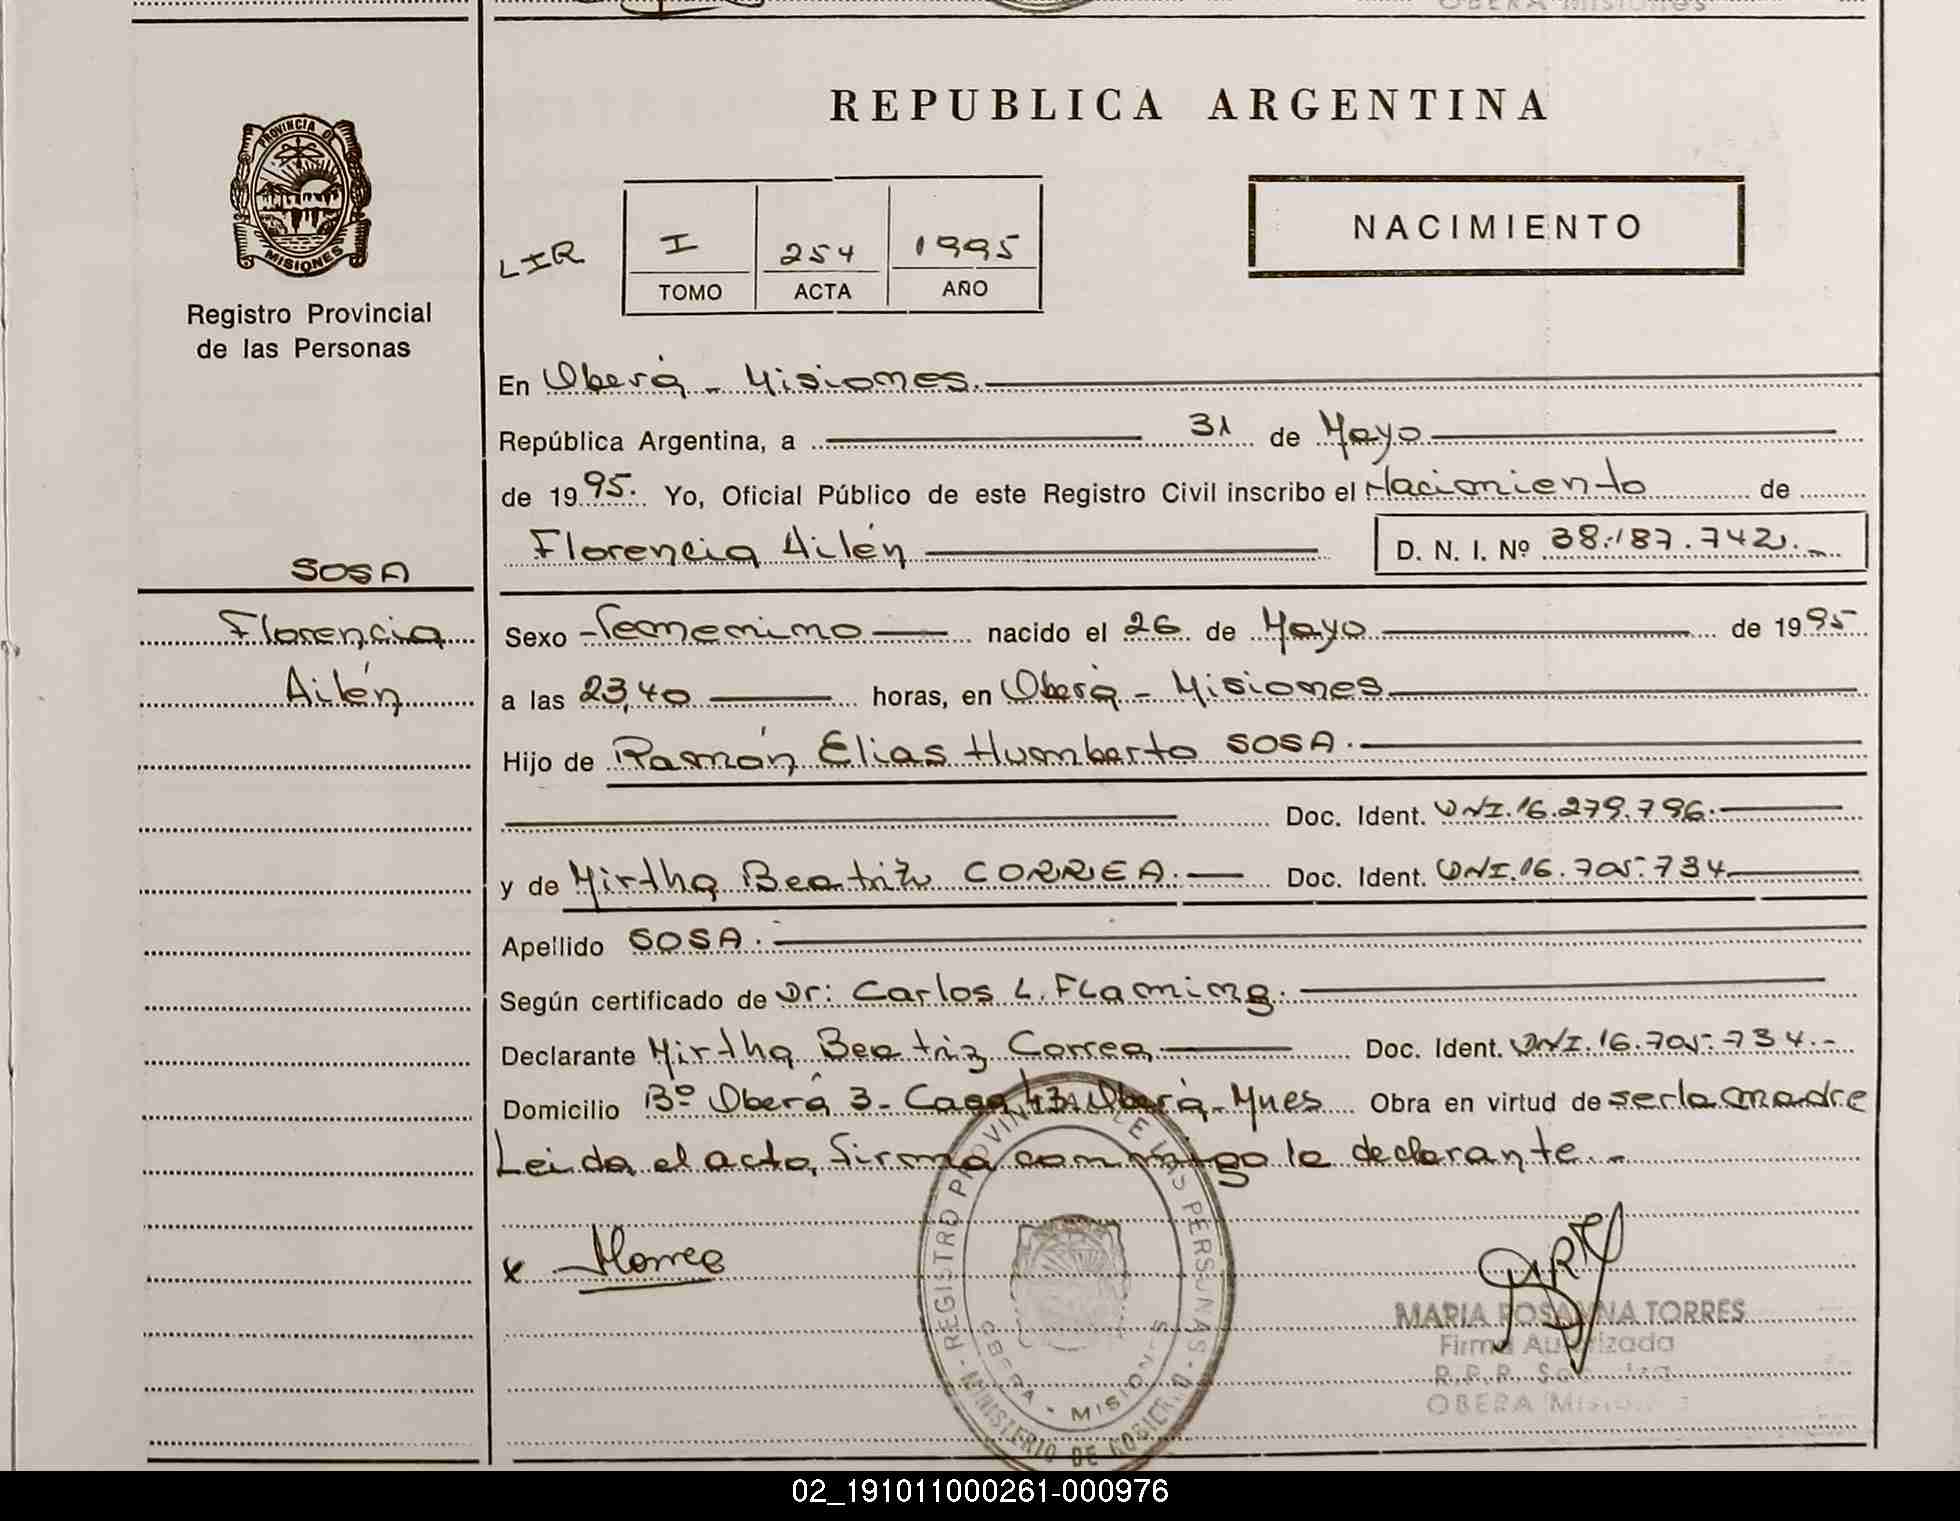 OBERA Misiones
PROVINCIA DE
MISIONES
Registro Provincial
de las Personas
REPUBLICA ARGENTINA
NACIMIENTO
LIR
I 254 1995
TOMO ACTA AÑO
En Oberá - Misiones.
República Argentina, a 31 de Mayo
de 1995. Yo, Oficial Público de este Registro Civil inscribo el Nacimiento de
Florencia Ailén D. N. I. Nº 38.187.742.-
SOSA
Florencia
Ailén
Sexo Femenino nacido el 26 de Mayo de 1995
a las 23,40 horas, en Oberá - Misiones
Hijo de Ramón Elias Humberto SOSA.
Doc. Ident. DNI.16.279.796.
y de Mirtha Beatriz CORREA. Doc. Ident. DNI.16.705.734
Apellido SOSA.
Según certificado de Dr: Carlos L. Flaming.
Declarante Mirtha Beatriz Correa Doc. Ident. DNI.16.705.734.-
Domicilio Bº Oberá 3- Casa 43. Oberá-Mnes Obra en virtud de ser la madre
Leida el acta, firma conmigo la declarante.-
x
REGISTRO PROVINCIAL DE LAS PERSONAS
MINISTERIO DE GOBIERNO
OBERA - MISIONES
MARIA ROSANNA TORRES
Firma Autorizada
R.P.P.
OBERA Misiones
02_191011000261-000976